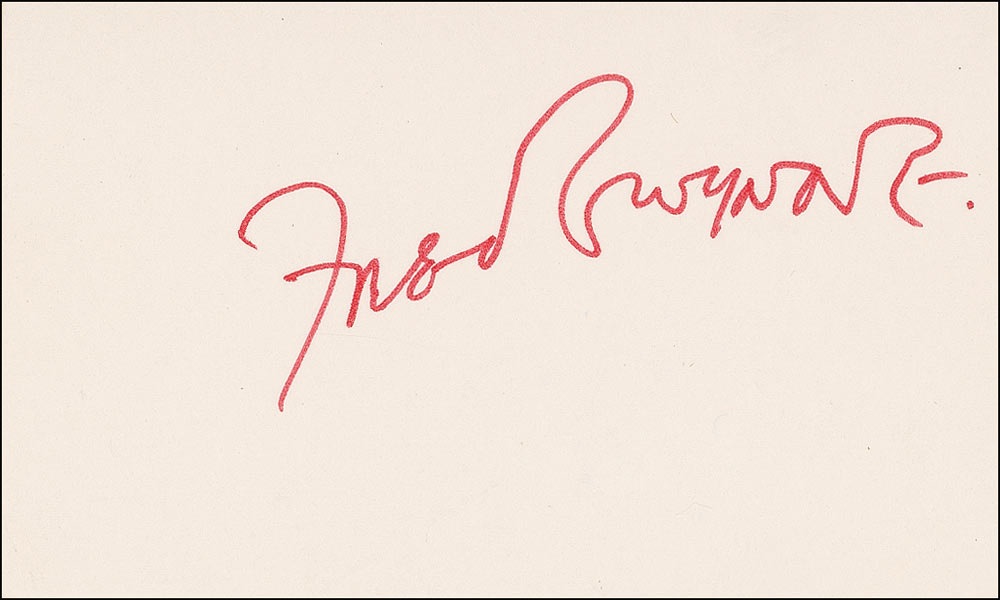 Fred Gwynne.